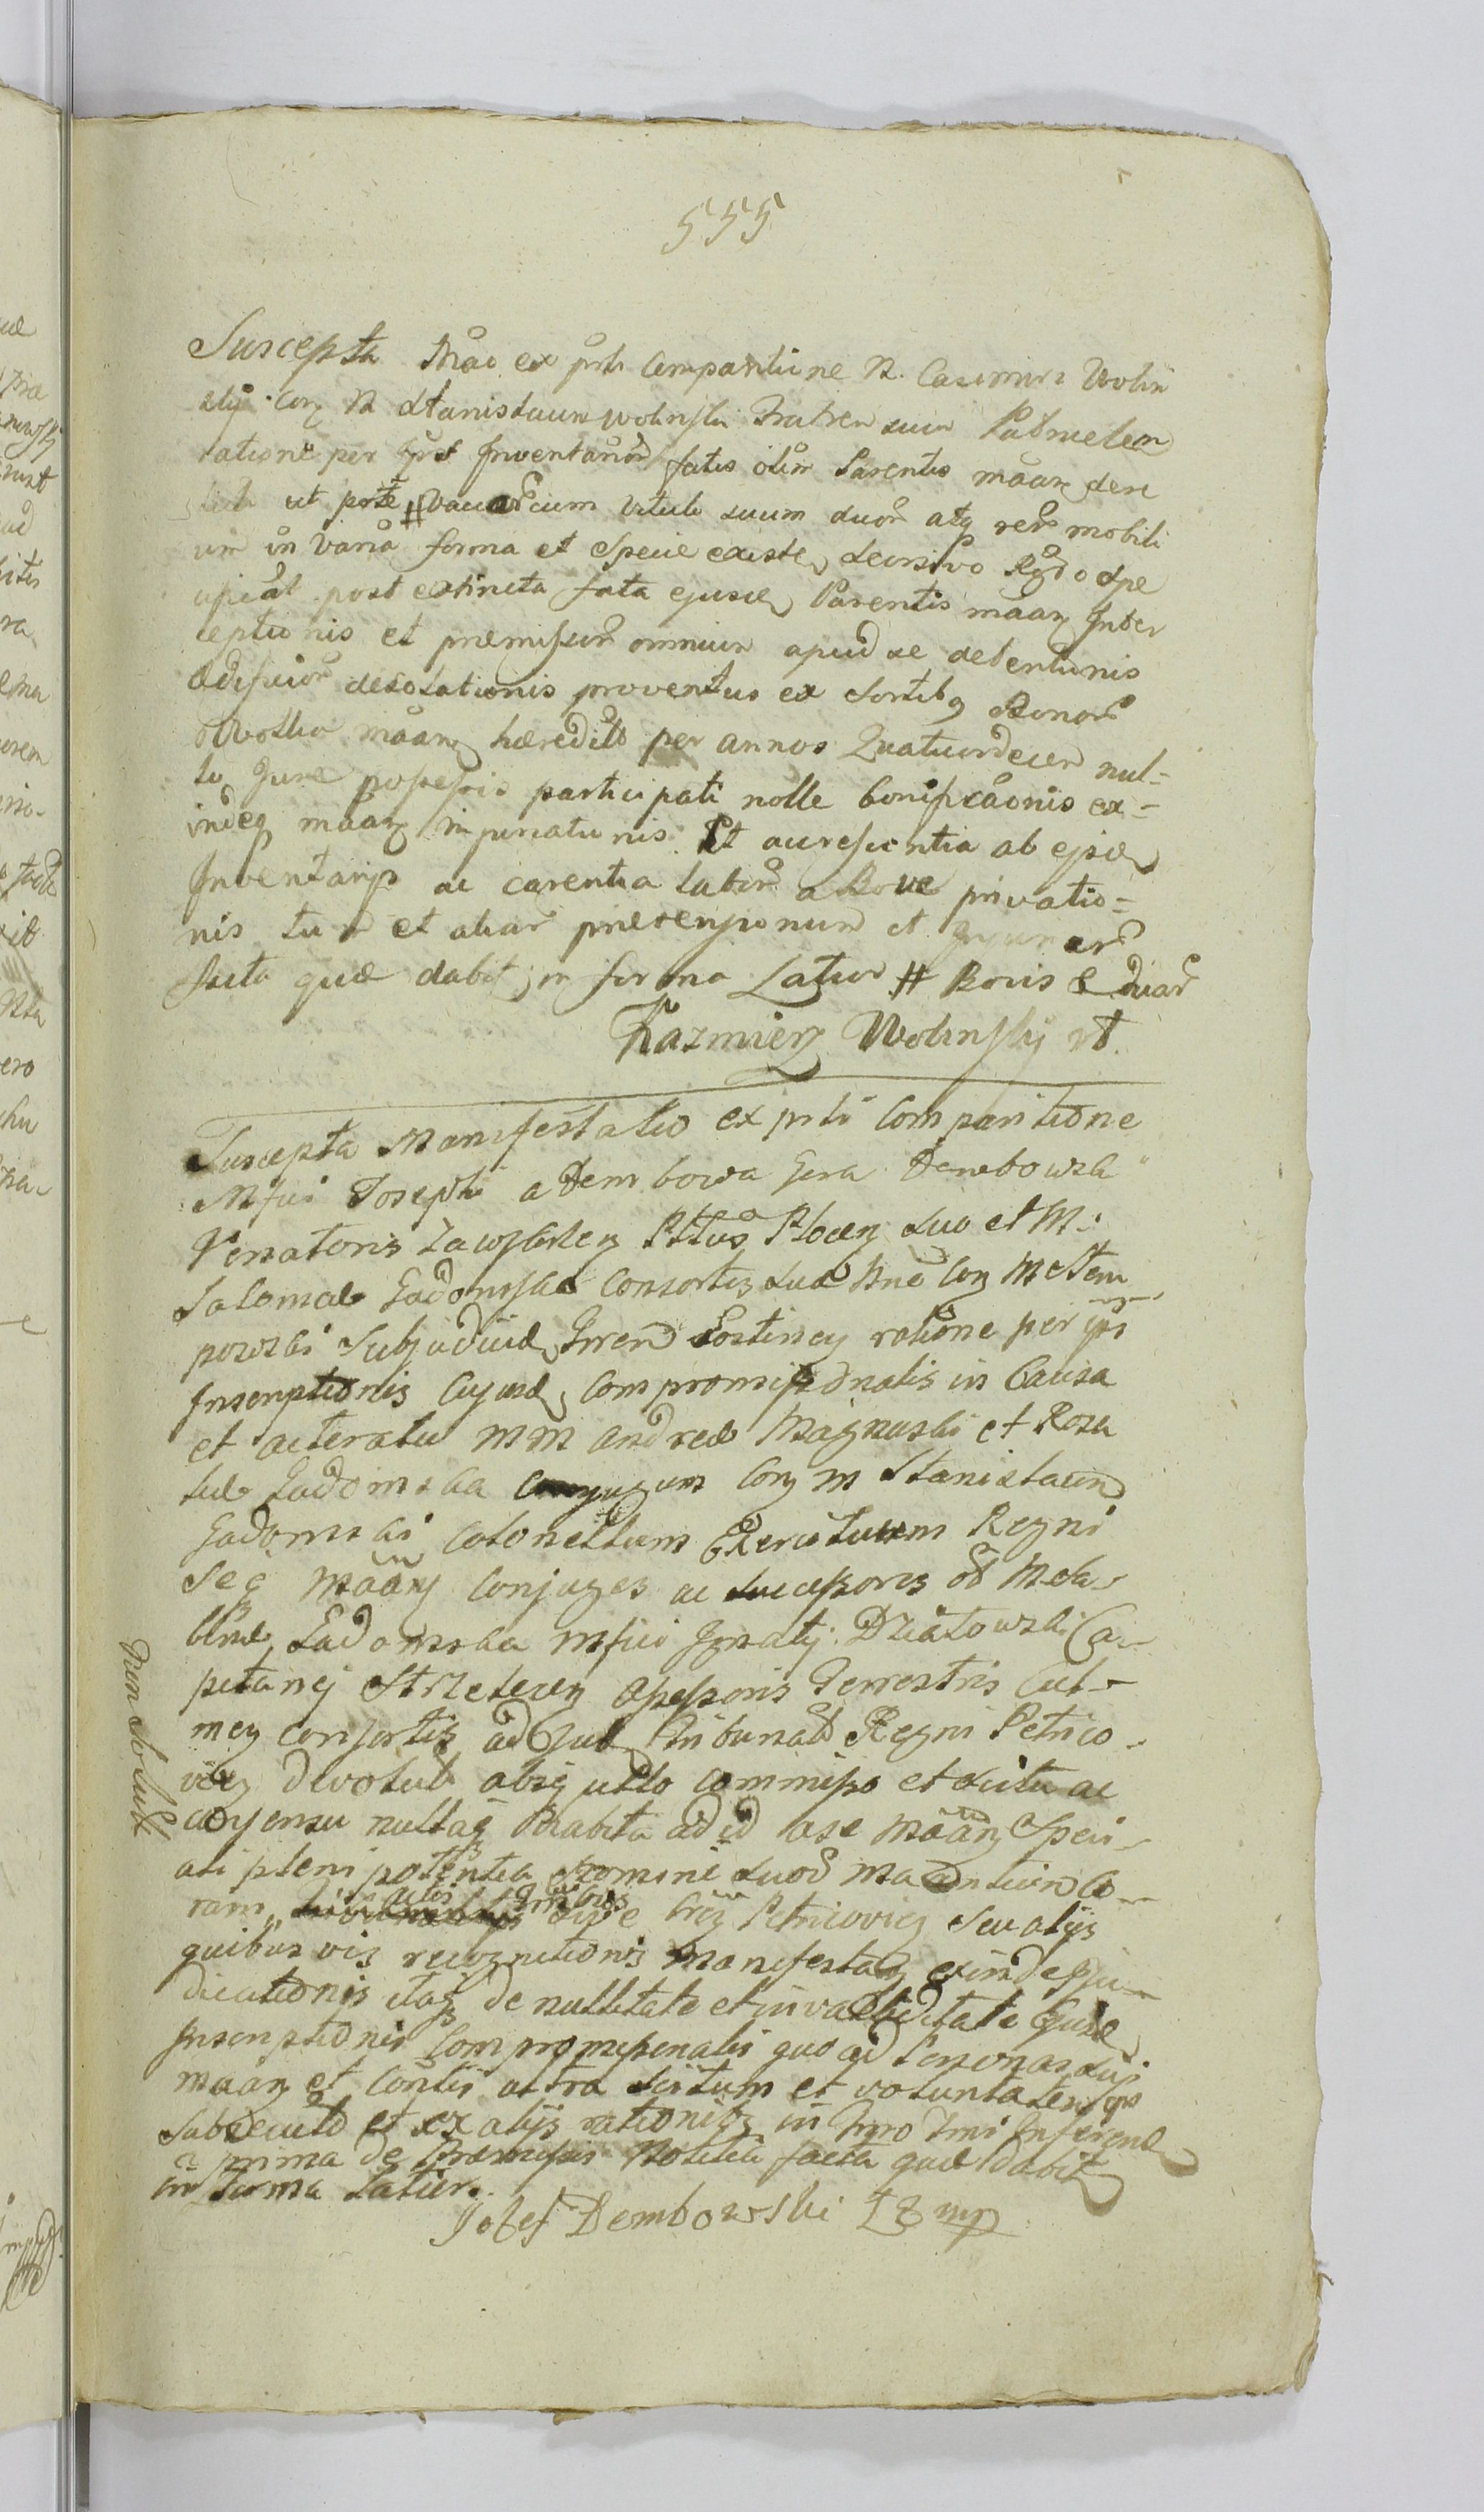 555
Suscepta Mão ex prti Comparitione N. Casimiri Wolin
skij Corz N Stanislaum Wolinski Fratrem suum Patruelem
ratione per Ipsũ Inventariorũ fatis olim Parentis mãarz dere
ut pote # vacarũ cum vitulo suum duorũ atq rerũ mobili
um in varia forma et specie existeñ
post extincta fata ejusd Parentis mãarz Inter
ceptionis et premissorũ omnium apud se detentionis
Ædificiorũ desolationis proventus ex Sortibq Bonorũ
Wolka mãarz hæredită per annos Quatuordecem nul=
lo Jure possessis participati nolle bonificãonis ex=
indeq mãarz injuriationis Et accrescentia ab ejusd
Inventarijs ac carentia laborũ a Bove privatio=
nis tum et aliarũ prætensionum et Injuriarũ
facta quæ dabit in forma Latior # Bovis e duar
Kazmierz Wolinskij
Suscepta Manifestatio ex prti Comparitione
Mfici Josephi a Dembowa Gora Dembowski
Venatoris Zawskrzen Pltus Plocen suo et M.
Salomæ Gadomska Consortis suæ Nne Corz M Stem
powski Subjudicem Trren Gostinen ratione per ips
Inscriptionis Cujusd Compromissionalis in Causa
et acteratu MM Andreæ Magnuski et Rosa
liæ Gadomska Conjugum Corz M Stanislaum
Gadomski Colonellum Exercituum Regni
Seq Mãarz Conjuges ac Successores oĩ M Sa-
binæ Gadomska Mfici Ignatij Działowski Ca-
pitanej Strzelecen Assessoris Terrestris Cul-
men Consortis ad Jud Tribunal Regni Petrico-
vien devoluti absq ullo commisso et Scitu ac
consensu nullaq habita ad id a se Mãarz Speci-
ali plenipotentia Nomine Suorũ Mãantium Co-
ram actis Trribus sive Crez Petricovien seu alijs
quibusvis recognitionis Manifestarz exinde Inju-
dicationis itaq de nullitate et invaliditate Ejusd
Inscriptionis Compromissionalis quo ad Personas Sui
Mãarz et Contis ultra scitum et voluntatem ips
Subsecuto et ex alijs rationibq in Trro Trmi Inferend
a prima de Præmissis Notitia facta quæ dabit
in forma Latiori
Jozef Dembowski Ł Z mp
Non Solut